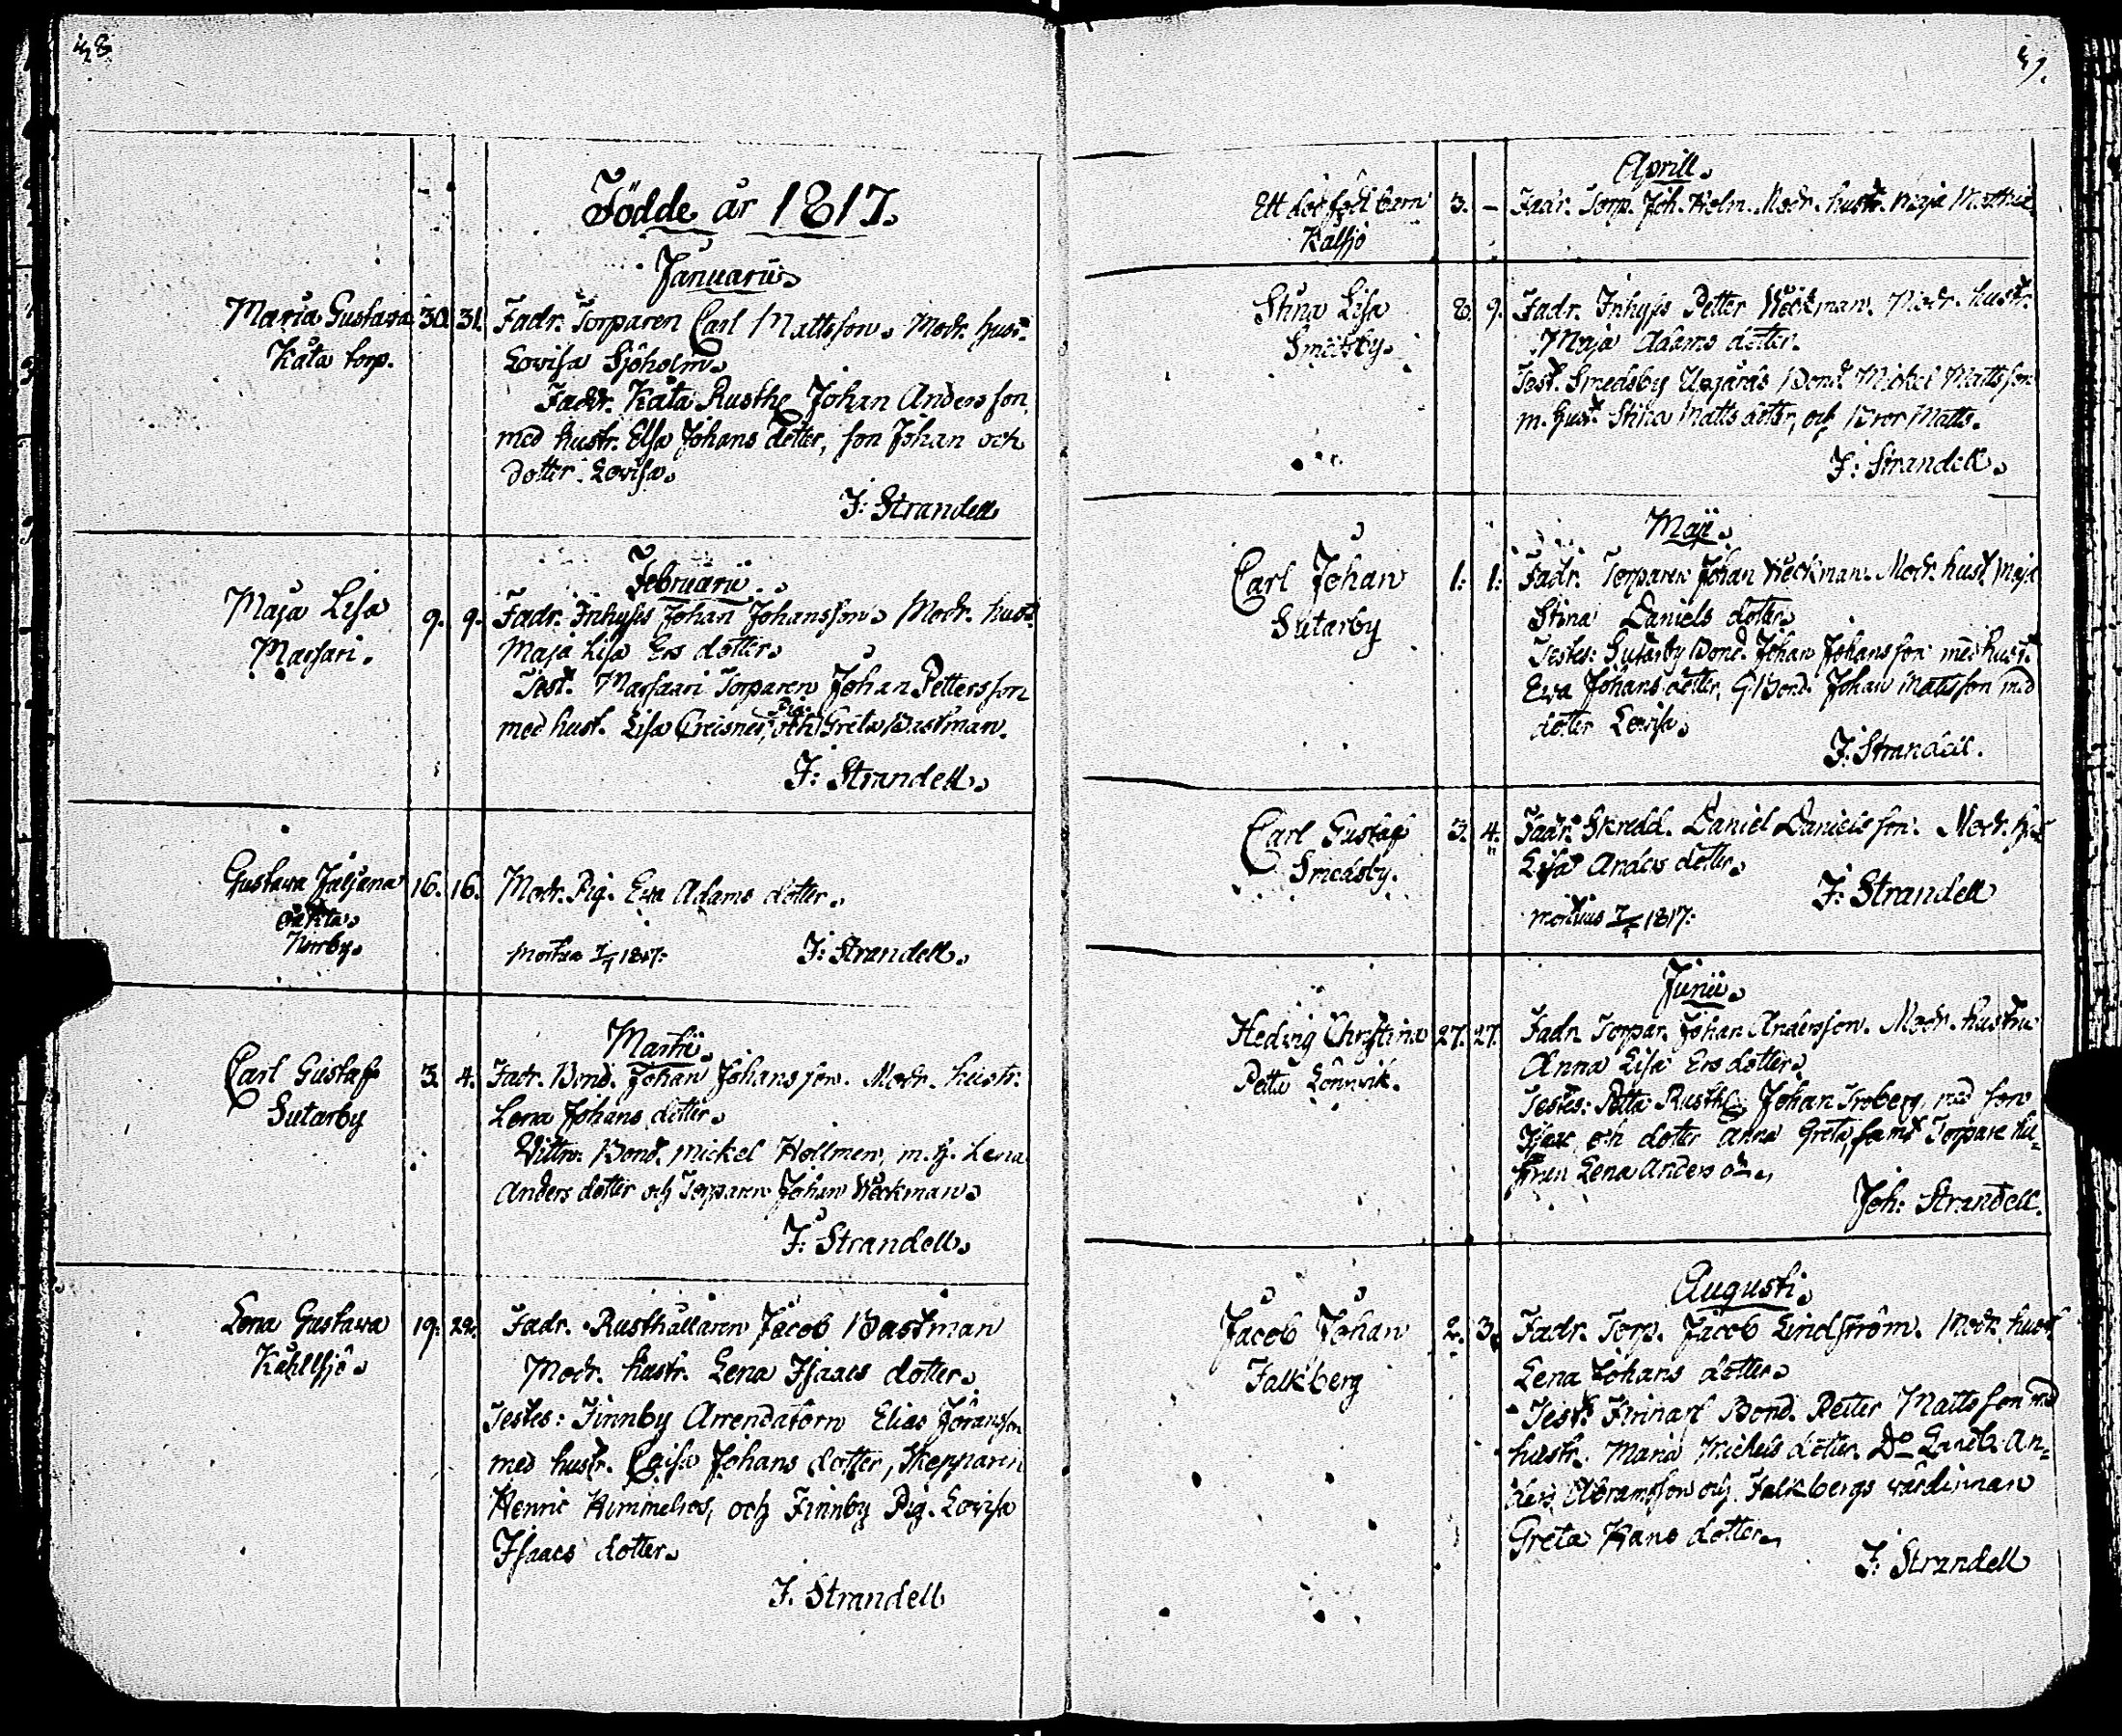 48.
Födde år 1817.
Januarii
Maria Gustava 30. 31. Fadr. Torparen Carl Mattsson. Modr. hust.
Kåta torp. Lovisa Sjöholm.
Faddr. Kåta Rusth. Johan Andersson,
med hustr. Elsa Johans dotter, son Johan och
dotter Lovisa.
J: Strandell
Februarii
Maja Lisa 9. 9. Fadr. Inhyses Johan Johansson. Modr. hust.
Massari. Maja Lisa Ers dotter.
Test. Massaari Torparen Johan Pettersson
med hust. Lisa och Pig. Greta Bastman.
J: Strandell.
Gustava 16. 16. Modr. Pig. Eva Adams dotter.
oäkta.
Norrby. Mortua 1817. J: Strandell.
Martii
Carl Gustaf 3. 4. Fadr. Bond. Johan Johansson. Modr. hustr.
Sutarby Lena Johans dotter.
Vittn. Bond. Mickel Hollmen, m. h. Lena
Anders dotter och Torparen Johan Weckman.
J: Strandell.
Lena Gustava 19. 22. Fadr. Rusthållaren Jacob Bastman
Kahllsjö. Modr. hustr. Lena Isaacs dotter.
Testes: Finnby Arrendatorn Elias Johansson
med hustr. Caisa Johans dotter, Skepparen
Henric Himmelros, och Finnby Pig. Lovisa
Isaacs dotter.
J. Strandell
49.
Aprill.
Ett dödfödt barn 3. - Fadr. Torp. Joh. Holm. Modr. hustr. Maja
Kålsjö
Stina Lisa 8. 9. Fadr. Inhyses Petter Weckman. Modr. hustr.
Smedsby. Maja Adams dotter.
Test. Smedsby Uppgårds Bond. Mickel Mattsson
m. hust. Stina Matts dotter, och Bror Matts.
J: Strandell.
Maji.
Carl Johan 1. 1. Fadr. Torparen Johan Weckman. Modr. hust. Maja
Sutarby Stina Daniels dotter
Testes: Sutarby Bond. Johan Johansson med hust.
Eva Johans dotter, Bond. Johan Mattsson med
dotter Lovisa.
J: Strandell.
Carl Gustaf 3. 4. Fadr. Skredd. Daniel Danielsson. Modr. hus
Smedsby. Lisa Anders dotter.
mortuus 1817. J: Strandell
Junii.
Hedvig Christina 27. 27. Fadr. Torpar. Johan Andersson. Modr. hustru
Petta Lönnvik. Anna Lisa Ers dotter.
Testes: Petta Rusth. Johan Troberg, med son
och dotter Anna Greta, samt Torpare hu-
strun Lena Anders dr.
Joh: Strandell.
Augusti.
Jacob Johan 2. 3. Fadr. Torp. Jacob Lindström. Modr. hust.
Falkberg Lena Johans dotter.
Test. Finnari Bond. Petter Mattsson med
hustr. Maria Michels dotter. Do Landb. An-
ders Abramsson och Falkbergs värdinnan
Greta Hans dotter.
J: Strandell